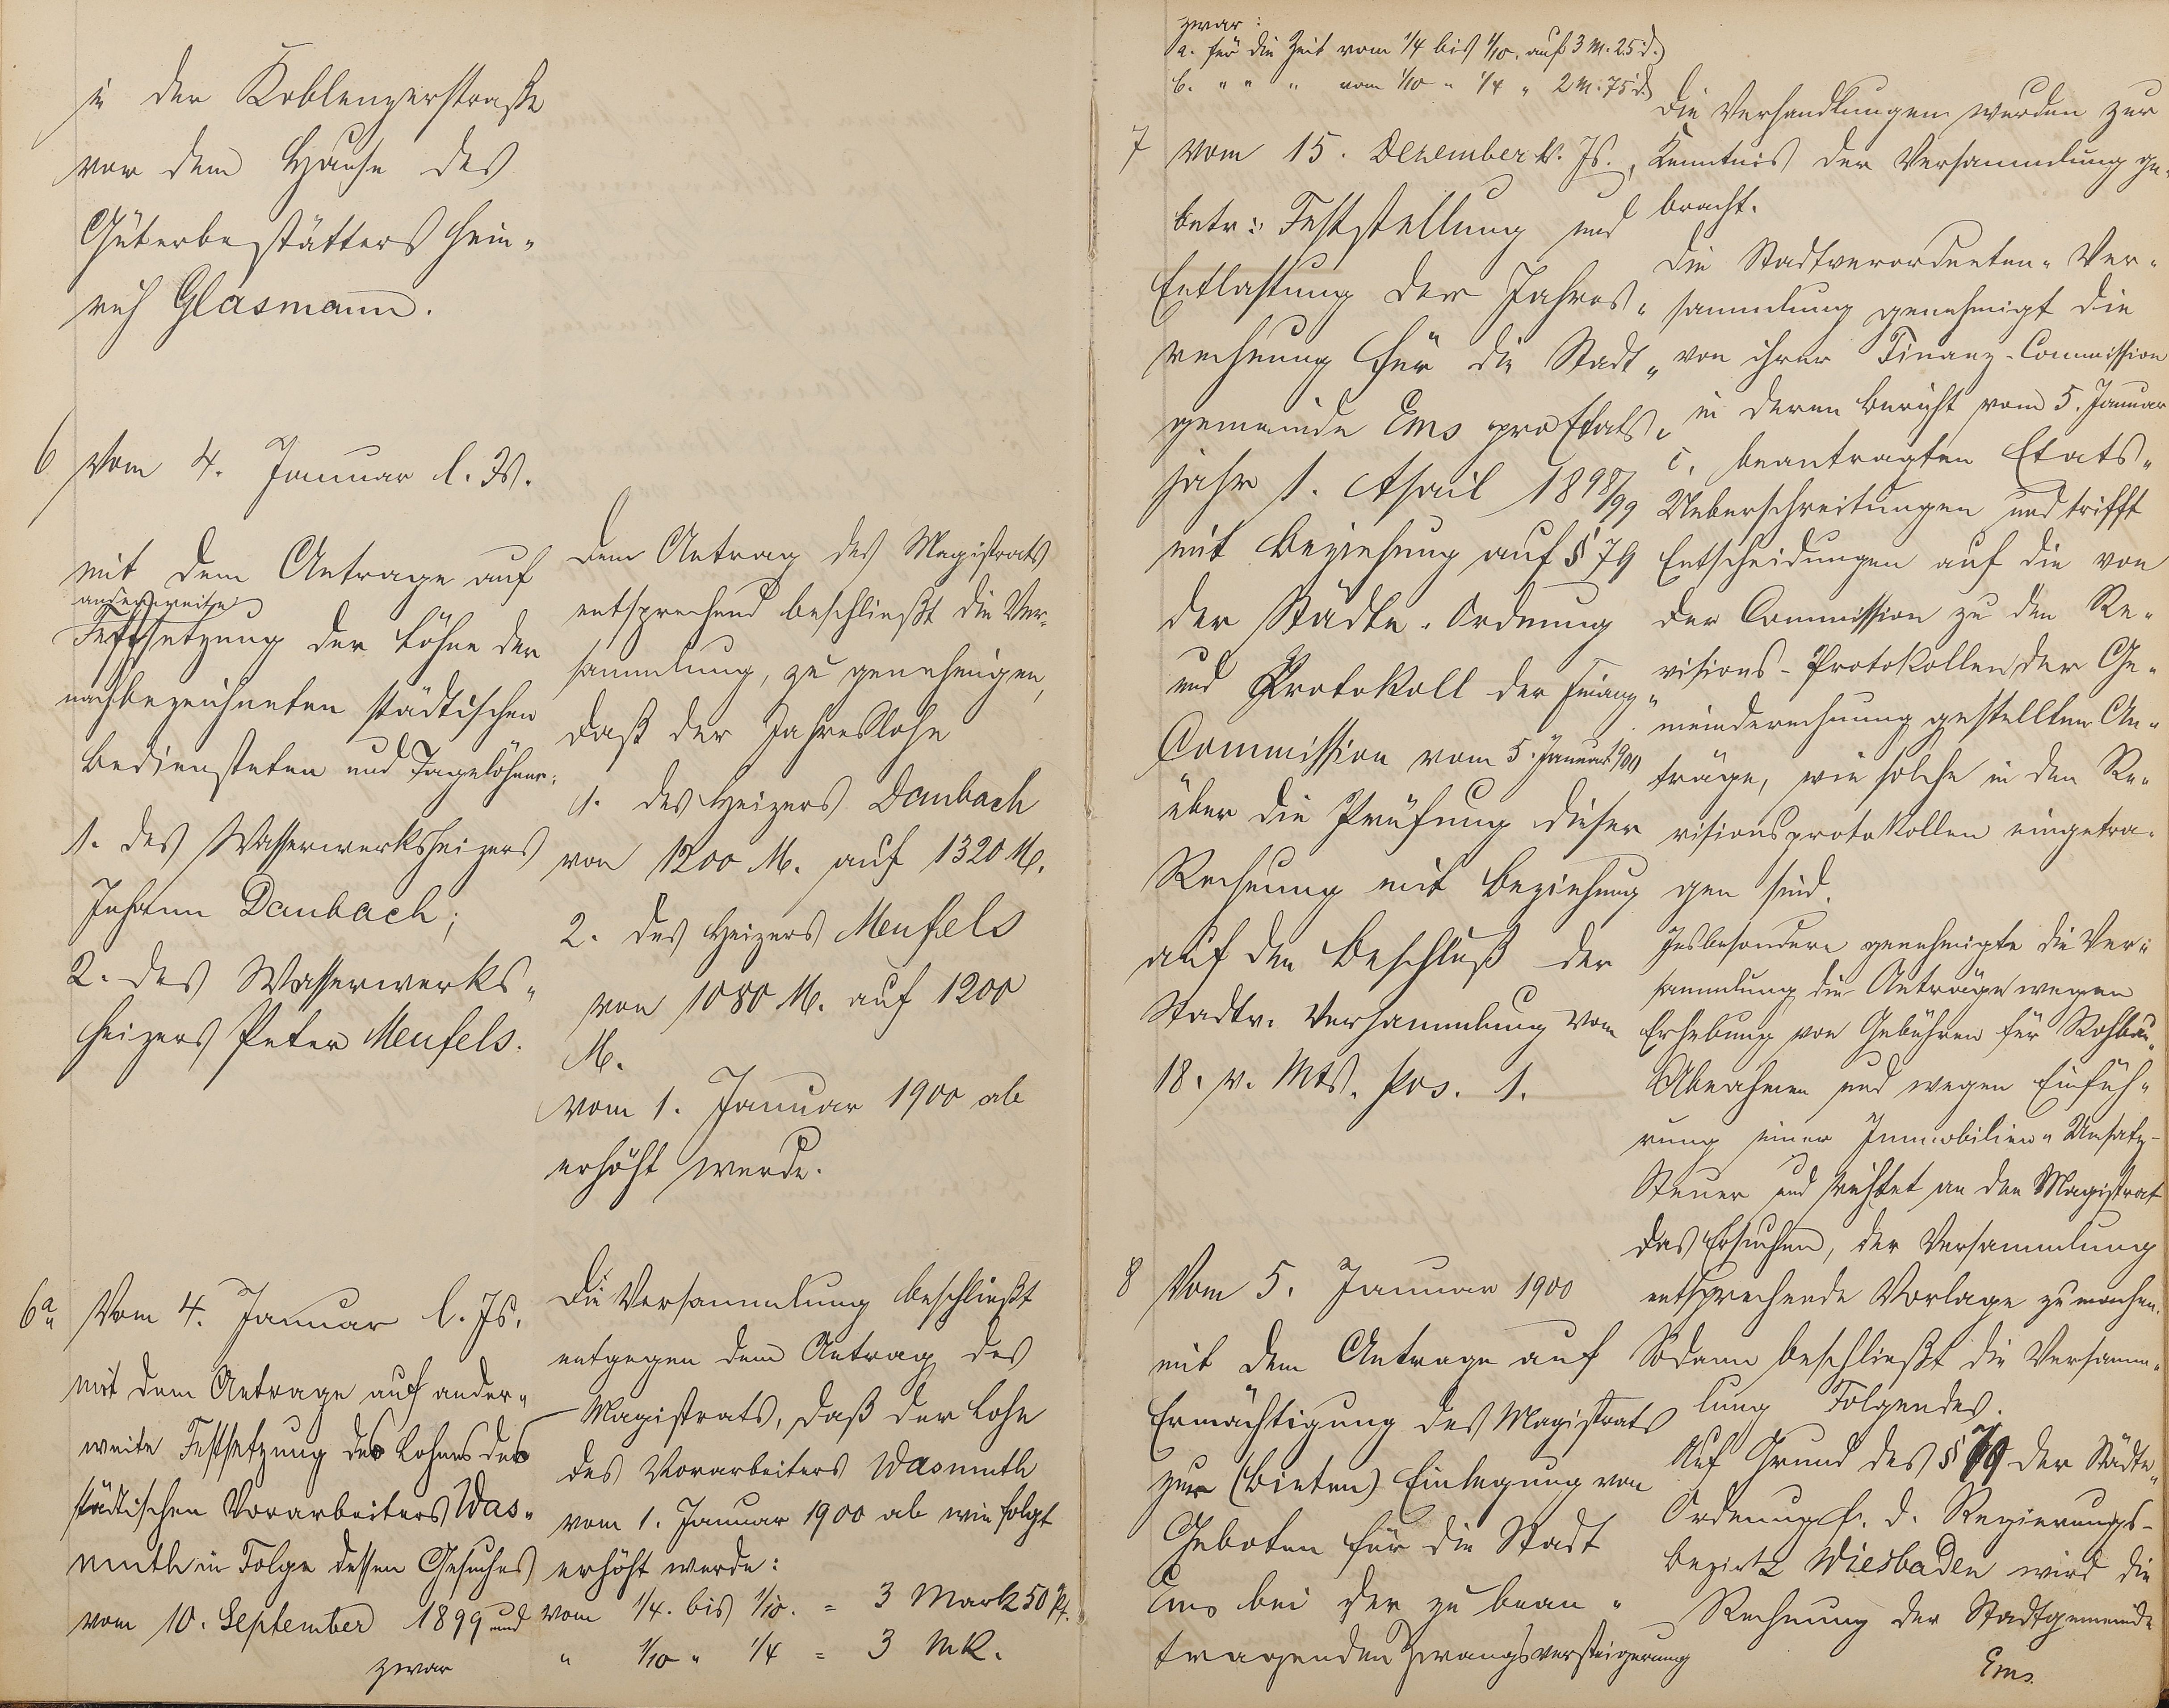 in der Koblenzerstraße
vor dem Hause des
Güterbestätters Hein-
rich Glasmann.
6 Vom 4. Januar l. Js.
mit dem Antrage auf
anderweite
Festsetzung der Löhne der
nachbezeichneten städtischen
Bediensteten und Tagelöhner:
1. des Wasserwerksheizers
Johann Daubach;
2. des Wasserwerks-
heizers Peter Meufels.
Dem Antrag des Magistrats
entsprechend beschließt die Ver-
sammlung, zu genehmigen,
daß der Jahreslohn
1. des Heizers Daubach
von 1200 M. auf 1320 M.
2. des Heizers Meufels
von 1080 M. auf 1200
M.
vom 1. Januar 1900 ab
erhöht werde.
6a Vom 4. Januar l. Js.
mit dem Antrage auf ander-
weite Festsetzung des Lohnes des
städtischen Vorarbeiters Was-
muth in Folge dessen Gesuches
vom 10. September 1899 und
zwar
Die Versammlung beschließt
entgegen dem Antrag des
Magistrats, daß der Lohn
des Vorarbeiters Wasmuth
vom 1. Januar 1900 ab wie folgt
erhöht werde:
vom 1/4. bis 1/10. = 3 Mark 50 Pf.
" 1/10 " 1/4 = 3 Mk.
zwar:
a. für die Zeit vom 1/4 bis 1/10. auf 3 M. 25 d.)
b. " " " vom 1/10 " 1/4 " 2 M. 75 d.)
7 Vom 15. Dezember v. Js.,
betr: Feststellung und
Entlastung der Jahres-
rechnung für die Stadt-
gemeinde Ems pro Etats-
jahr 1. April 1898/99
mit Beziehung auf § 79
der Städte-Ordnung
und Protokoll der Finanz-
Commission vom 5. Januar 1900
über die Prüfung dieser
Rechnung mit Beziehung
auf den Beschluß der
Stadtv. Versammlung vom
18. v. Mts. pos. 1.
Die Verhandlungen wurden zur
Kenntnis der Versammlung ge-
bracht.
Die Stadtverordneten-Ver-
sammlung genehmigt die
von ihrer Finanz-Commission
in deren Bericht vom 5. Januar
c. beantragten Etats-
Ueberschreitungen und trifft
Entscheidungen auf die von
der Commission zu den Re-
visions-Protokollen der Ge-
meinderechnung gestellten An-
träge, wie solche in den Re-
visionsprotokollen eingetra-
gen sind.
Insbesondere genehmigte die Ver-
sammlung die Anträge wegen
Erhebung von Gebühren für Rohbau-
Abnahmen und wegen Einfüh-
rung einer Immobilien-Umsatz-
Steuer und richtet an den Magistrat
das Ersuchen, der Versammlung
entsprechende Vorlage zu machen.
Sodann beschließt die Versamm-
lung Folgendes.
Auf Grund des § 79 der Städte-
Ordnung f. d. Regierungs-
bezirk Wiesbaden wird die
Rechnung der Stadtgemeinde
Ems
8 Vom 5. Januar 1900
mit dem Antrage auf
Ermächtigung des Magistrats
zur (Bieten) Einlegung von
Geboten für die Stadt
Ems bei der zu bean-
tragenden Zwangsversteigerung